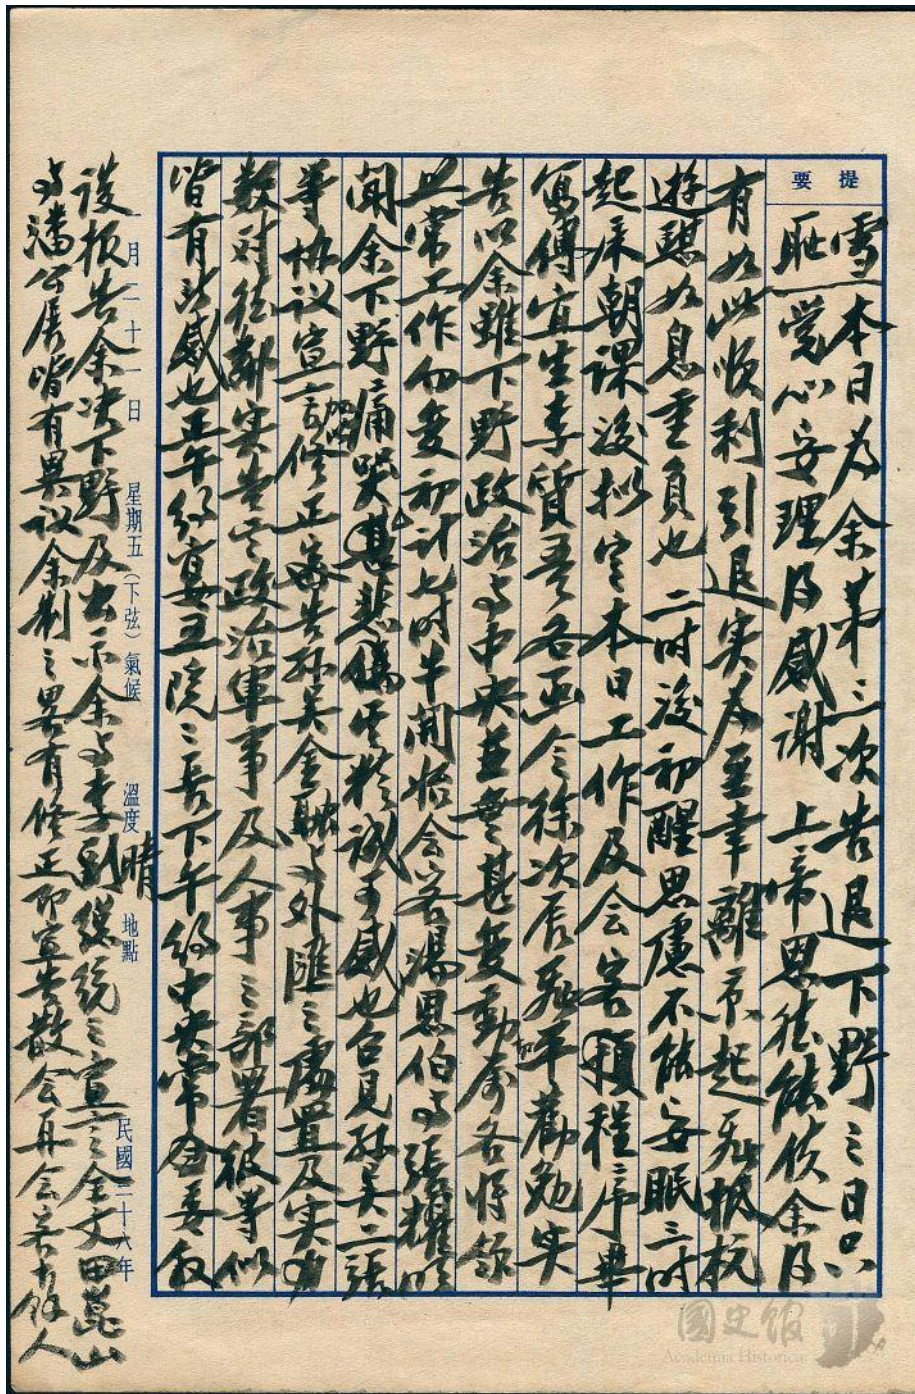 提要
雪恥 本日為余第三次告退下野之日只
覺心安理得感謝 上帝恩德能使余得
有如此順利引退實為至幸離京起飛抵杭
遊憩如息重負也二時後初醒思慮不能安眠三時
起床朝課後擬定本日工作及會客 程序畢
寫傅宜生李質吾各函令徐次辰飛平加以勸勉
告以余雖下野政治與中央並無甚變動屬各將領
照常工作勿變初計七時半開始會客湯恩伯與張耀明
聞余下野痛哭甚悲 其於誠可感也召見孫吳二張
等協議宣言加以修正密告孫吳金融與外匯之處置及實力
數對德鄰實告其政治軍事及人事之部署彼等似
皆有所感也正午約宴五院之長下午約中央常會委敘
談報告余決下野及出示余與李副總統之宣言全文田崑山
與潘公展皆有異議余制之畧有修正即宣告散會再會客有餘人
一月二十一日 星期五(下弦) 氣候 溫度 地點 民國三十八年
晴
國史館
Academia Historica